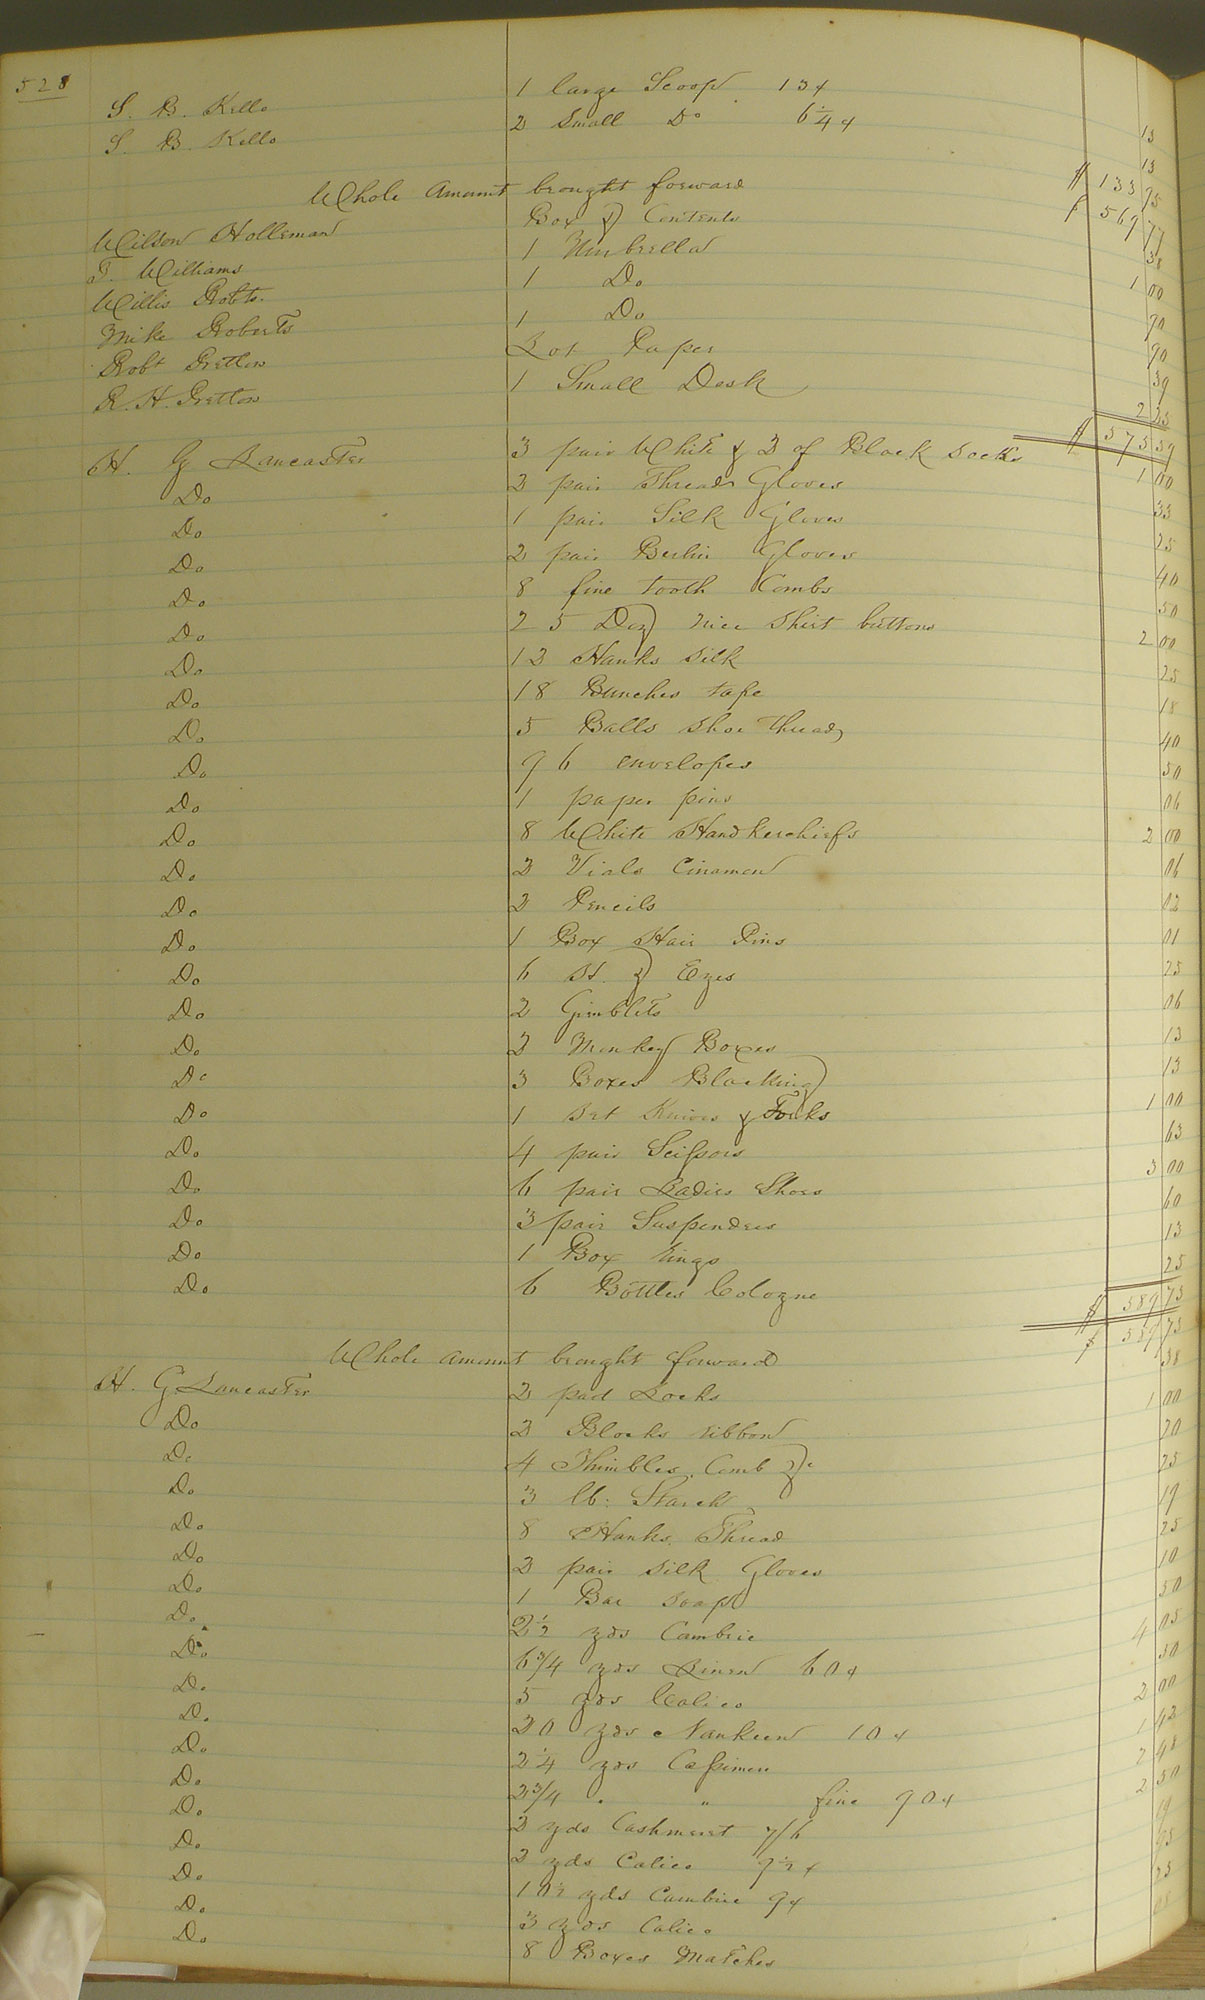 528
S. B. Kello 1 large Scoop 13 ¢ 13
S. B. Kello 2 Small Do 6¼ ¢ 13
$ 133 75
Whole Amount brought forward $ 569 77
Wilson Holleman Box & Contents 38
T. Williams 1 Umbrella 1 00
Willis Robts. 1 Do 70
Mike Roberts 1 Do 90
Robt Pretlow Lot Paper 39
R. H. Pretlow 1 Small Desk 2 25
$ 575 39
H. G Lancaster 3 pair White & 3 of Black Socks 1 00
Do 2 pair Thread Gloves 33
Do 1 pair Silk Gloves 25
Do 2 pair Berlin Gloves 40
Do 8 fine tooth Combs 50
Do 25 Doz nice Shirt buttons 2 00
Do 12 Hanks Silk 25
Do 18 Bunches tape 18
Do 5 Balls Shoe thread 40
Do 96 envelopes 50
Do 1 paper pins 06
Do 8 White Handkerchiefs 2 00
Do 2 Vials Cinamon 06
Do 2 Pencils 02
Do 1 Box Hair Pins 01
Do 6 H. & Eyes 25
Do 2 Gimblets 06
Do 2 Monkey Boxes 13
Do 3 Boxes Blacking 13
Do 1 Set Knives & Forks 1 00
Do 4 pair Scissors 63
Do 6 pair Ladies Shoes 3 00
Do 3 pair Suspenders 60
Do 1 Box rings 13
Do 6 Bottles Cologne 25
$ 589 73
Whole amount brought forward $ 589 73
H. G Lancaster 2 pad Locks 38
Do 2 Blocks ribbon 1 00
Do 4 Thimbles Comb &c 20
Do 3 lb: Starch 25
Do 8 Hanks Thread 19
Do 2 pair silk Gloves 25
Do 1 Bar soap 10
Do 2½ yds Cambric 50
Do 6¾ yds Linen 60 ¢ 4 05
Do 5 yds Calico 50
Do 20 yds Nankeen 10 ¢ 2 00
Do 2¼ yds Cassimere 1 42
Do 2¾ " " fine 90 ¢ 2 48
Do 2 yds Cashmeret 7/6 2 50
Do 2 yds Calico 9½ ¢ 19
Do 10½ yds Cambric 9 ¢ 95
Do 3 yds Calico 25
Do 8 Boxes Matches